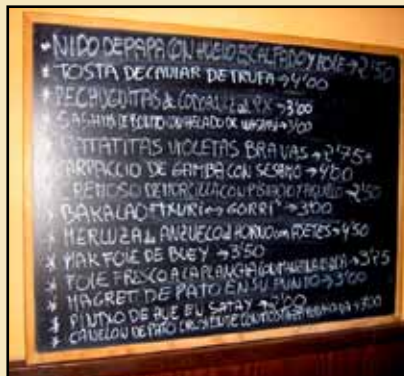 NIDO DE PAPA CON HUEVO ESCALFADO Y FOIE → 2'50
TOSTA DE CAVIAR DE TRUFA → 4'00
PECHUGUITAS de CODORNIZ al P.X → 3'00
SASHIMI DE BONITO CON HELADO DE WASABI → 3'00
PATTATITAS VIOLETAS BRAVAS → 2'75
CARPACCIO DE GAMBA CON SESAMO → 4'00
CREMOSO DE MORCILLA CON PISTACHO Y 2'50
BAKALAO "TXURI GORRI" → 3'00
MERLUZA DE ANZUELO al HORNO con → 4'50
MAKFOIE DE BUEY → 3'50
FOIE FRESCO A LA PLANCHA CON 3'75
MAGRET DE PATO EN SU PUNTO → 3'00
PINTXO DE AVE EN SATAY → 2'00
CANELON DE PATO CRUJIENTE CON